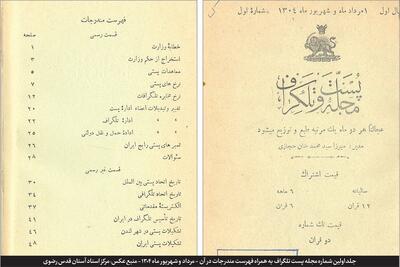 سال اول
۱ - مرداد ماه و شهریور ماه ۱۳۰٤
شمارهٔ اول
مجله پست و تلگراف
مجاناً هر دو ماه یك مرتبه طبع و توزیع میشود
مدیر: میرزا سید محمد خان حجازی
قیمت اشتراك
سالیانه ۶ ماهه
۱۲ قران ۶ قران
قیمت تك شماره
دو قران
فهرست مندرجات
قسمت رسمی صفحه
خطابهٔ وزارت ۱
استخراج از حکم وزارت ۳
معاهدات پستی ۵
نرخ های پستی ۷
نرخ مخابره تلگرافات ۱۲
تغییر و تبدیلات اعضاء اداره پست ۲۰
» » ادارهٔ تلگراف ۲۲
» » ادارهٔ حمل و نقل دولتی ۲۵
تمبر های پستی رایج ایران ۲۶
سئوالات ۲۸
قسمت غیر رسمی
تاریخ اتحاد پستی بین المللی ۳۰
تاریخ اتحاد تلگرافی ۳۴
الکتریستهٔ مقدماتی ۳۷
تاریخ تأسیس تلگراف در ایران ۴۱
تشکیلات پستی در شهر لندن ۴۶
تشکیلات پستی ایران ۴۸
جلد اولین شماره مجله پست تلگراف به همراه فهرست مندرجات در آن - مرداد و شهریور ماه ۱۳۰۴ - منبع عکس: مرکز اسناد آستان قدس رضوی